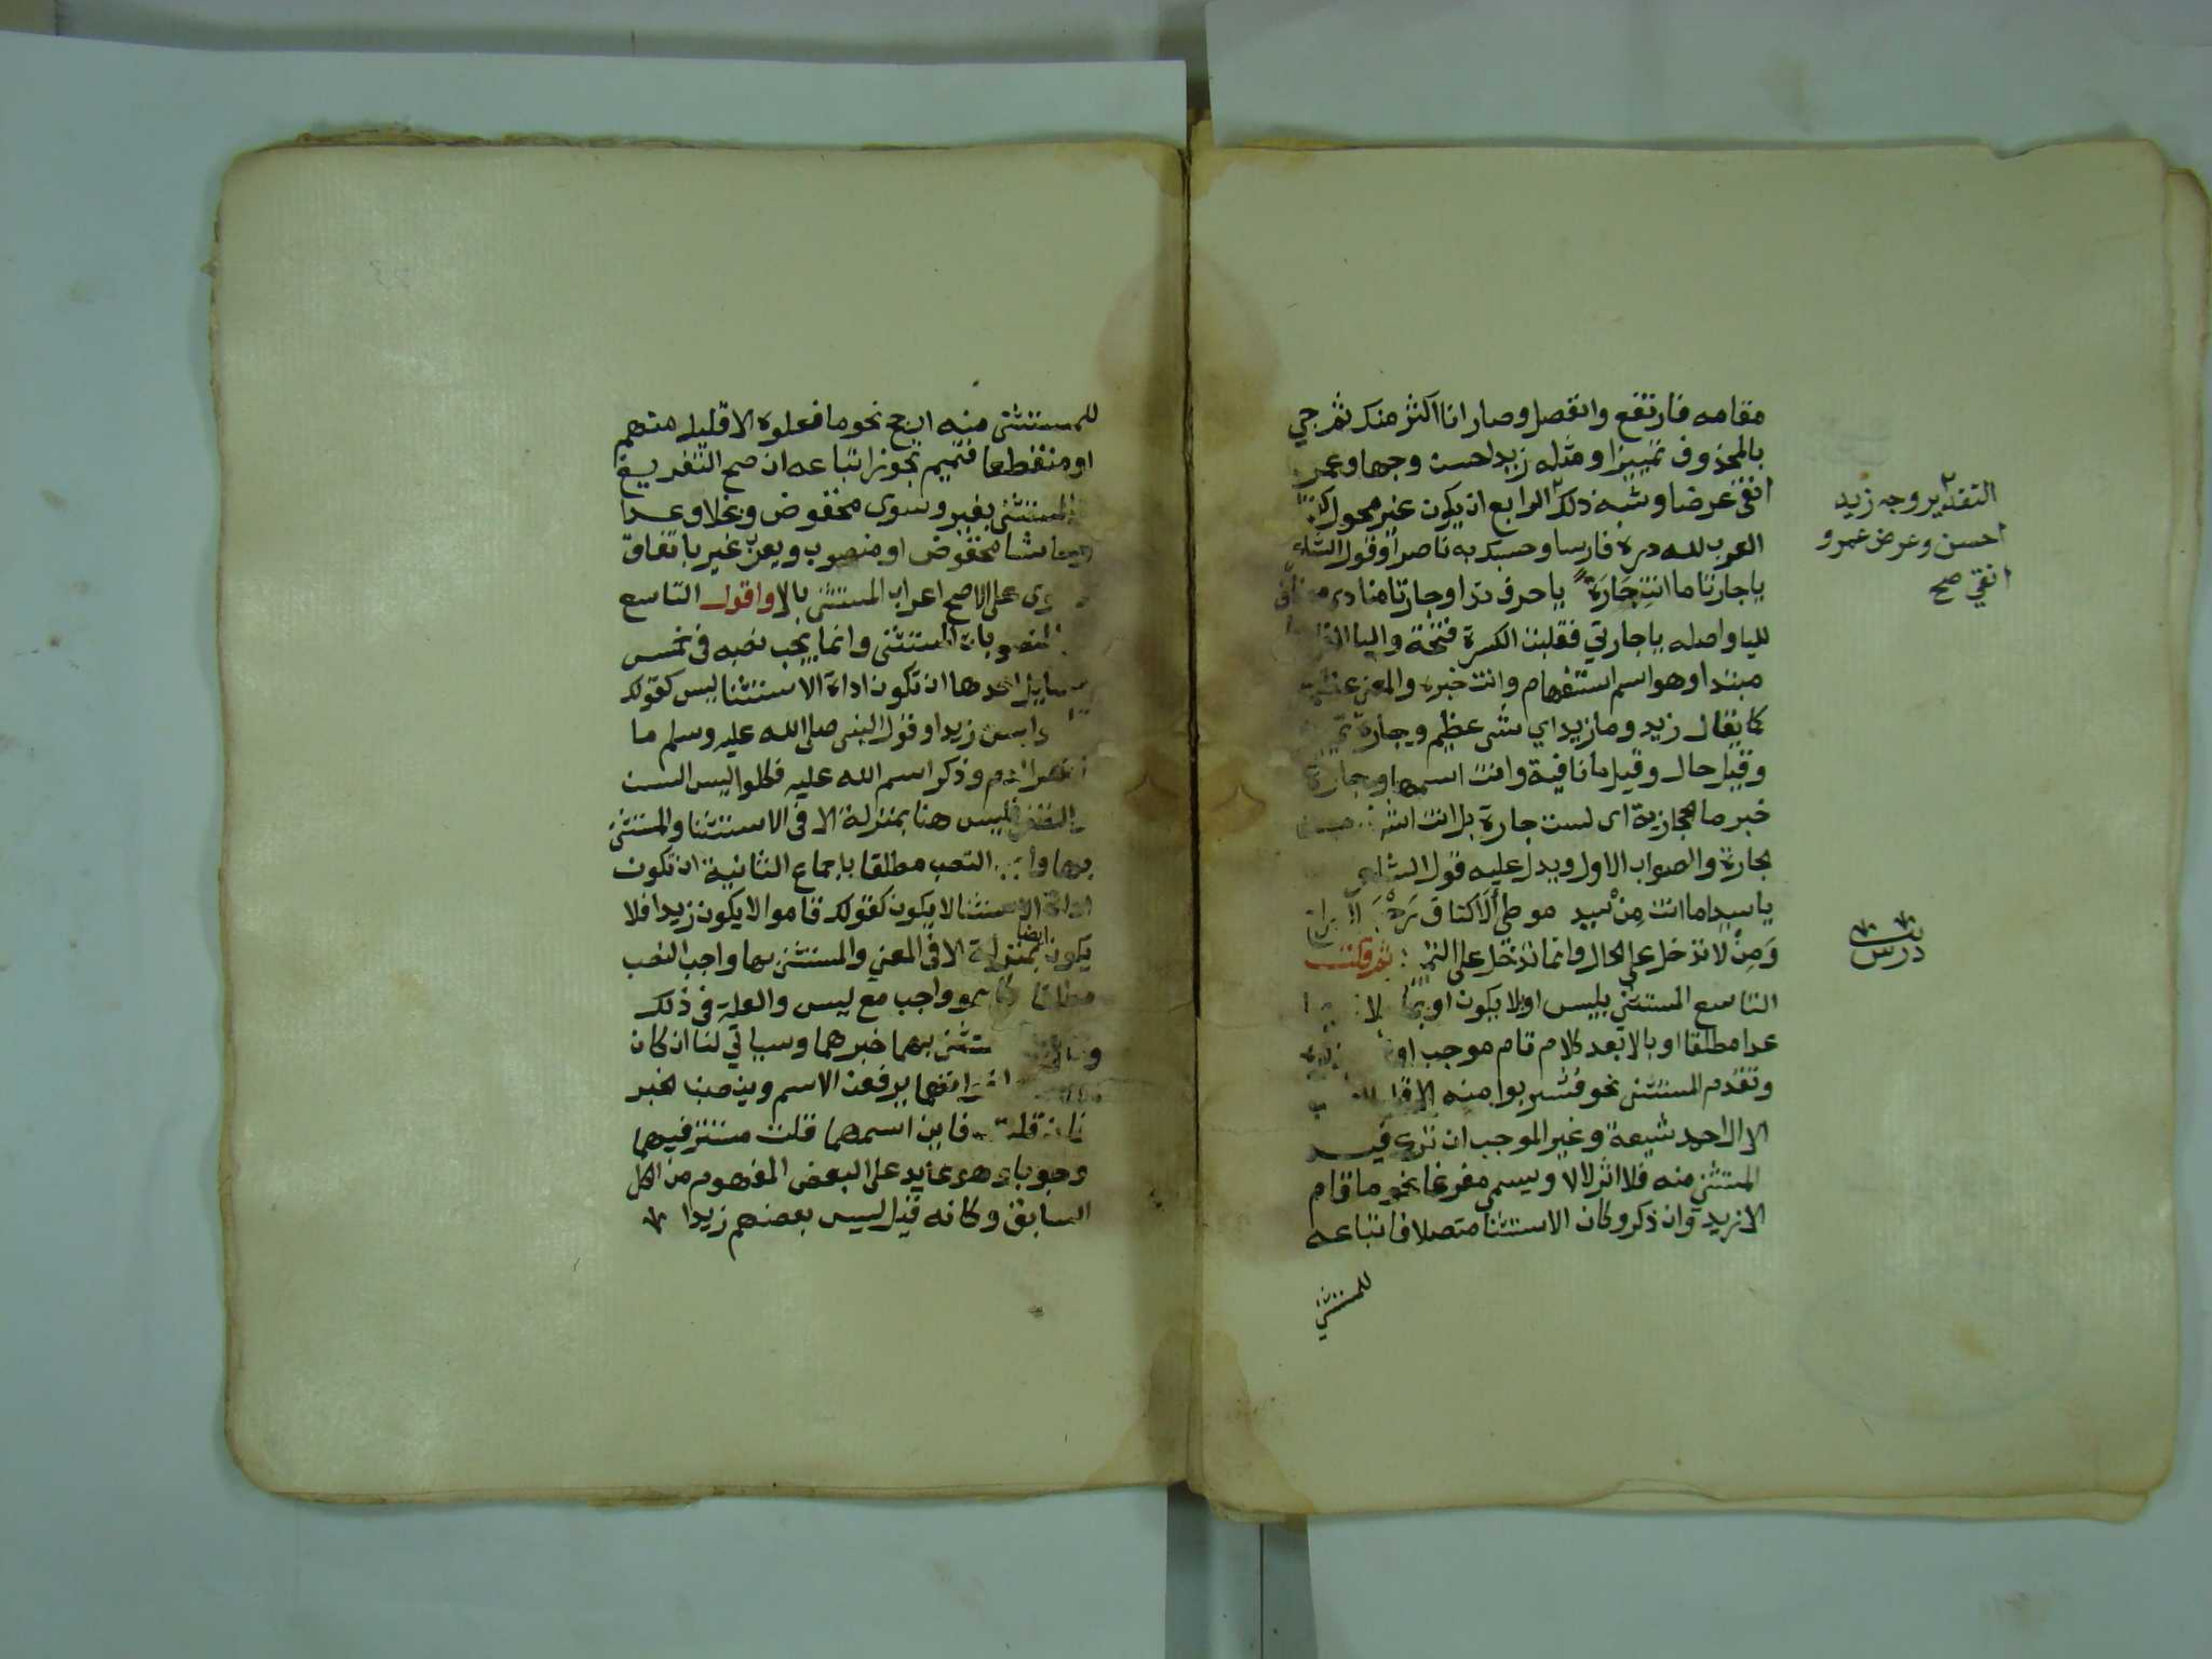 مقامه فارتفع وانفصل وصار انا اكثر منك ثم جي
بالمحذوف تمييزا ومثله زيد احسن وجها وعمرو
انقى عرضا وشبه ذلك الرابع ان يكون غير محول
العرب لله دره فارسا وحسبك به ناصرا وقول الشاعر
ياجارتا ما انتِ جَارَة يا حرف ندا وجارتا منادى مضاف
لليا واصله يا جارتي فقلبت الكسرة فتحة واليا الفا
مبتدا وهو اسم استفهام وانت خبره والمعنى عظمت
كما يقال زيد وما زيد اي شى عظيم وجارة تمييز
وقيل حال وقيل ما نافية وانت اسمها وجارة
خبر ما الحجازية اى لست جارة بل انت اشرف من
الجارة والصواب الاول ويدل عليه قول الشاعر
يا سيدا ما انت مِنْ سيد موطى ألاكتاف رَحْبَ
وَمِنْ لا تدخل على الحال وانما تدخل على التمييز ثم قلت
التاسع المستثنى بليس او بلا يكون او بما خلا
عدا مطلقا او بالا بعد كلام تام موجب او
وتقدم المستثنى نحو فشربوا منه الا قليلا
الا ال احمد شيعة وغير الموجب ان ترك فيه
المستثنى منه فلا اثر لالا ويسمى مفرغا نحو ما قام
الا زيد وان ذكر وكان الاستثنا متصلا فاتباعه
للمستثنى
التقدير وجه زيد
احسن وعرض عمرو
انقي صح
درس
للمستثنى منه ارجح نحو ما فعلوه الا قليل منهم
او منقطعا فتميم تجوز اتباعه ان صح التفريغ
والمستثنى بغير وسوى مخفوض وبخلا وعدا
وحاشا مخفوض او منصوب ويعرب غير باتفاق
وسوى على الاصح اعراب المستثنى بالا واقول التاسع
المنصوبات المستثنى وانما يجب نصبه في خمس
مسايل احدها ان تكون اداة الاستثنا ليس كقولك
ليس زيدا وقول النبى صلى الله عليه وسلم ما
انهر الدم وذكر اسم الله عليه فكلوا ليس السن
والظفر فليس هنا بمنزلة الا في الاستثنا والمستثنى
بها واجب النصب مطلقا باجماع الثانية ان تكون
اداة الاستثنا لا يكون كقولك قاموا لا يكون زيدا فلا
يكون ايضا بمنزلة الا في المعنى والمستثنى بها واجب النصب
مطلقا كما هو واجب مع ليس والعلة في ذلك
المستثنى بهما خبرهما وسياتي لنا ان كان
واخواتها يرفعن الاسم وينصبن الخبر
فان قلت فاين اسمهما قلت مستتر فيهما
وجوبا وهو عايد على البعض المفهوم من الكل
السابق وكانه قيل ليس بعضهم زيدا